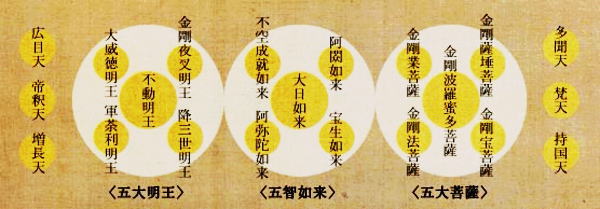 多聞天
梵天
持国天
金剛薩埵菩薩
金剛宝菩薩
金剛波羅蜜多菩薩
金剛業菩薩
金剛法菩薩
〈五大菩薩〉
阿閦如来
宝生如来
大日如来
不空成就如来
阿弥陀如来
〈五智如来〉
金剛夜叉明王
降三世明王
不動明王
大威徳明王
軍荼利明王
〈五大明王〉
広目天
帝釈天
増長天